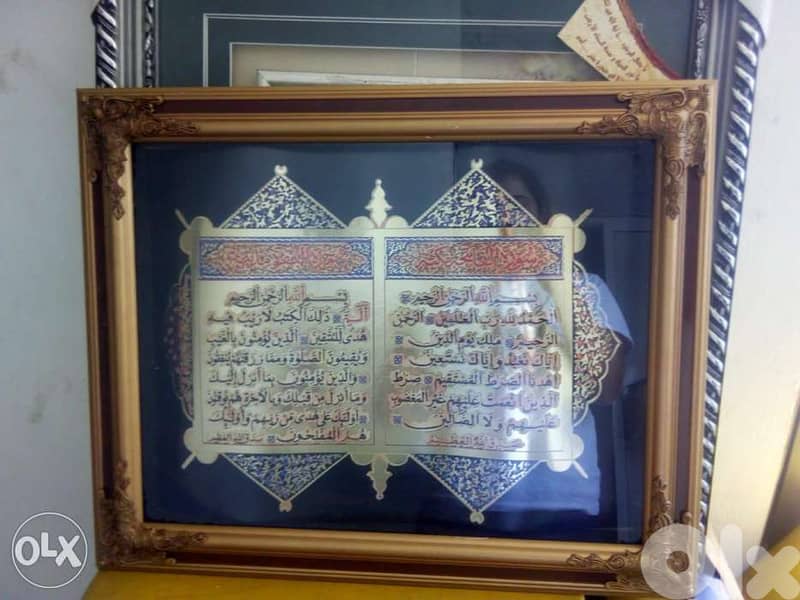 بسم الله الرحمن الرحيم
الحمد لله رب العلمين الرحمن
الرحيم ملك يوم الدين
إياك نعبد وإياك نستعين
اهدنا الصرط المستقيم صرط
الذين أنعمت عليهم غير المغضوب
عليهم ولا الضالين
صدق الله العظيم
بسم الله الرحمن الرحيم
الم ذلك الكتب لا ريب فيه
هدى للمتقين الذين يؤمنون بالغيب
ويقيمون الصلوة ومما رزقنهم ينفقون
والذين يؤمنون بما أنزل إليك
وما أنزل من قبلك وبالآخرة هم يوقنون
أولئك على هدى من ربهم وأولئك
هم المفلحون
صدق الله العظيم
OLX
olx